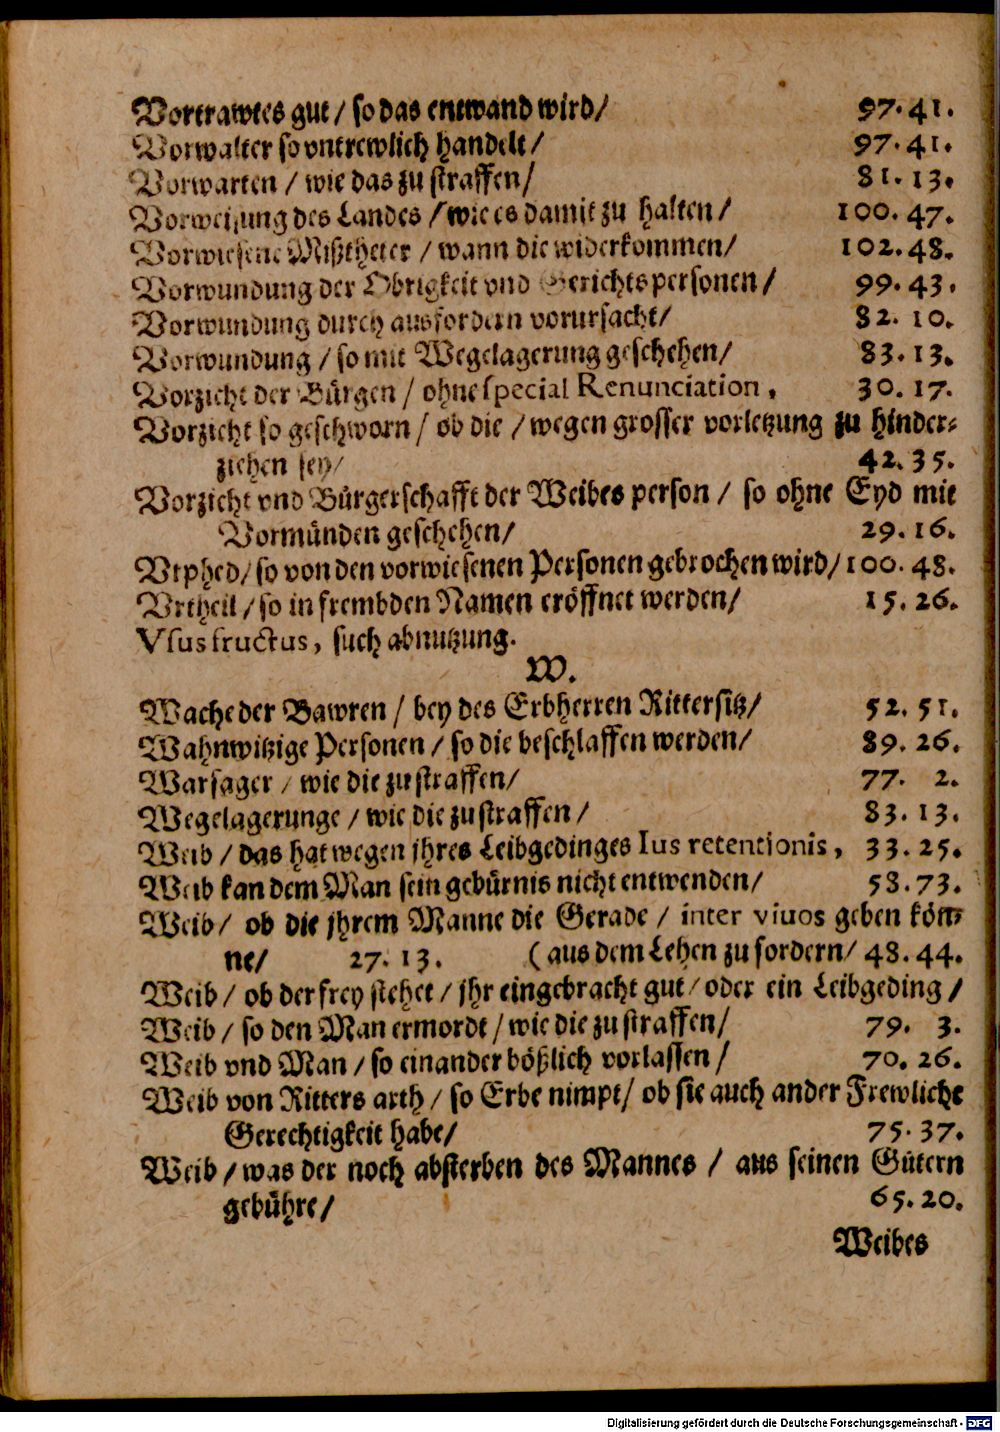 Vortrawtes gut / so das entwand wird / 97. 41.
Vorwalter so vntrewlich handelt / 97. 41.
Vorwarten / wie das zu straffen / 81. 13.
Vorweisung des Landes / wie es damit zu halten / 100. 47.
Vorwiesene Mißtheter / wann die widerkommen / 102. 48.
Vorwundung der Obrigkeit vnd Gerichts personen / 99. 43.
Vorwundung durch ausfordern vorursacht / 82. 10.
Vorwundung / so mit Wegelagerung geschehen / 83. 13.
Vorzicht der Bürgen / ohne special Renunciation, 30. 17.
Vorzicht so geschworn / ob die / wegen grosser vorletzung zu hinder-
ziehen sey / 42. 35.
Vorzicht vnd Bürgerschafft der Weibes person / so ohne Eyd mit
Vormünden geschehen / 29. 16.
Vrphed / so von den vorwiesenen Personen gebrochen wird / 100. 48.
Vrtheil / so in frembden Namen eröffnet werden / 15. 26.
Vsusfructus, such abnutzung.
W.
Wache der Bawren / bey des Erbherren Rittersitz / 52. 51.
Wahnwitzige Personen / so die beschlaffen werden / 89. 26.
Warsager / wie die zu straffen / 77. 2.
Wegelagerunge / wie die zu straffen / 83. 13.
Weib / das hat wegen jhres Leibgedinges Ius retentionis, 33. 25.
Weib kan dem Man sein gebürnis nicht entwenden / 58. 73.
Weib / ob die jhrem Manne die Gerade / inter viuos geben kön-
ne / 27. 13. ( aus dem Lehen zu fordern / 48. 44.
Weib / ob der frey stehet / jhr eingebracht gut / oder ein Leibgeding /
Weib / so den Man ermordt / wie die zu straffen / 79. 3.
Weib vnd Man / so einander bößlich vorlassen / 70. 26.
Weib von Ritters arth / so Erbe nimpt / ob sie auch ander Frewliche
Gerechtigkeit habe / 75. 37.
Weib / was der noch absterben des Mannes / aus seinen Gütern
gebühre / 65. 20.
Weibes
Digitalisierung gefördert durch die Deutsche Forschungsgemeinschaft - DFG